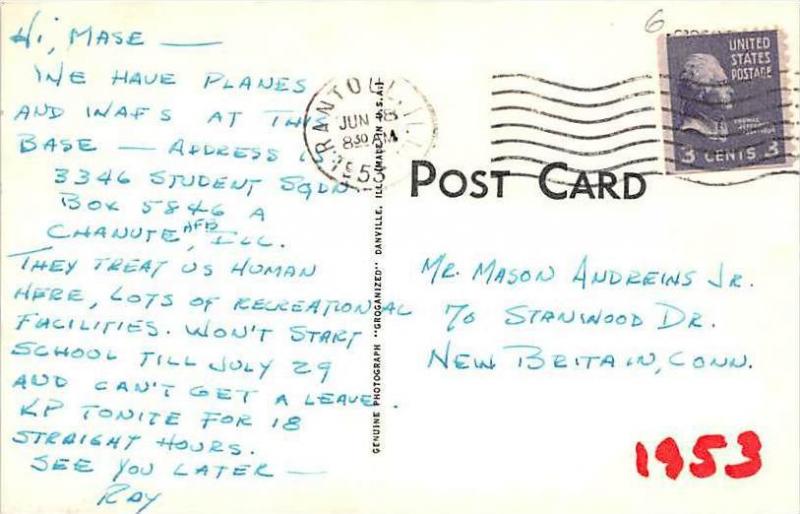 Hi, MASE —
WE HAVE PLANES
AND WAFS AT THIS
BASE — ADDRESS IS
3346 STUDENT SQDN.
BOX 5846 A
CHANUTE AFB, ILL.
THEY TREAT US HUMAN
HERE, LOTS OF RECREATIONAL
FACILITIES. WON'T START
SCHOOL TILL JULY 29
AND CAN'T GET A LEAVE.
KP TONITE FOR 18
STRAIGHT HOURS.
SEE YOU LATER —
RAY
RANTOUL, ILL.
JUN 8
830 AM
1953
GENUINE PHOTOGRAPH "GROGANIZED" DANVILLE, ILL. (MADE IN U.S.A.)
POST CARD
6
UNITED
STATES
POSTAGE
THOMAS
JEFFERSON
3 CENTS 3
MR. MASON ANDREWS JR.
70 STANWOOD DR.
NEW BRITAIN, CONN.
1953